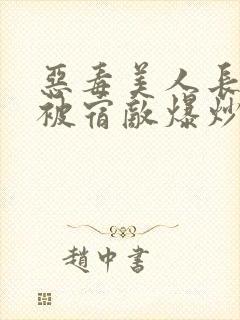 惡毒美人長
被宿敵爆炒
趙中書